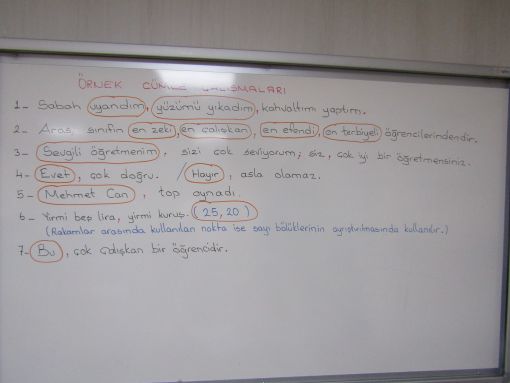 ÖRNEK CÜMLE ÇALIŞMALARI
1- Sabah uyandım, yüzümü yıkadım, kahvaltımı yaptım.
2- Aras sınıfın en zeki, en çalışkan, en efendi, en terbiyeli öğrencilerindendir.
3- Sevgili öğretmenim, sizi çok seviyorum; siz, çok iyi bir öğretmensiniz.
4- Evet, çok doğru. / Hayır, asla olamaz.
5- Mehmet Can, top oynadı.
6- Yirmi beş lira, yirmi kuruş. (25,20)
(Rakamlar arasında kullanılan nokta ise sayı bölüklerinin ayrıştırılmasında kullanılır.)
7- Bu, çok çalışkan bir öğrencidir.